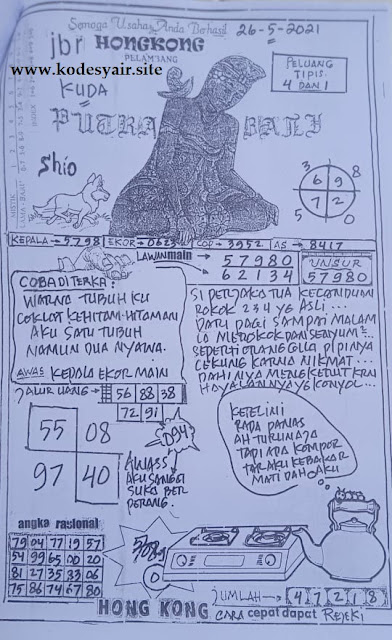 Semoga Usaha Anda Berhasil
26-5-2021
jbr HONGKONG
PELAMJANG
www.kodesyair.site
KUDA
PELUANG
TIPIS
4 DAN 1
PUTRA
Shio
3 6 9 8
5 7 2 0
KEPALA→5798 EKOR→0623 COP→3952 AS→8417
LAWAN main
57980
62134
UNSUR
57980
COBA DITERKA:
WARNA TUBUH KU
COKLAT KEHITAM-HITAMAN
AKU SATU TUBUH
NAMUN DUA NYAWA.
AWAS KEPALA EKOR MAIN
SI PERJAKA TUA KECANDUAN
ROKOK 234 YG ASLI...
DARI PAGI SAMPAI MALAM
SEPERTI ORANG GILA PIPINYA
CEKUNG KARNA NIKMAT...
DAHI NYA MENGKERUT KRN
HAYALAN NYA YG KONYOL...
JALUR UANG→ 56 88 38
72 91
55 08
97 40
D94
AWASS
AKU SANGAT
SUKA BER
PERANG.
KETEL INI
RADA PANAS
TAPI ADA KOMPOR
MATI DAH AKU
angka rasional
79 04 77 19 57
54 99 65 00 20
81 27 35 33 06
75 86 74 67 80
HONG KONG
JUMLAH→ 4 7 2 1 8
CARA cepat dapat REJEKI